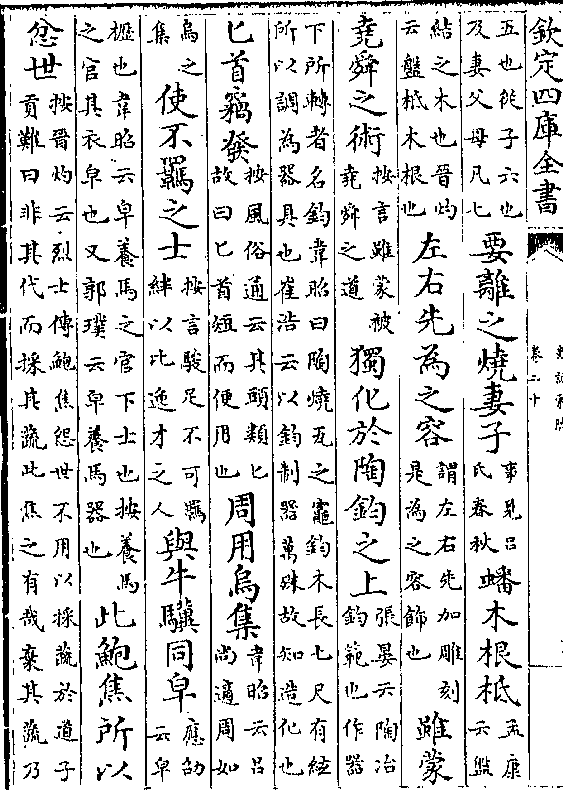 欽定四庫全書
史記索隱
卷二十
五也從子六也及妻父母凡七要離之燒妻子事見呂氏春秋蟠木根柢孟康云盤
結之木也晉灼云盤柢木根也左右先為之容謂左右先加雕刻是為之容飾也雖蒙
堯舜之術按言雖蒙被堯舜之道獨化於陶鈞之上張晏云陶冶鈞範也作器
下所轉者名鈞韋昭曰陶燒瓦之竈鈞木長七尺有絃所以調為器具也崔浩云以鈞制器萬殊故知造化也
匕首竊發按風俗通云其頭類匕故曰匕首短而便用也周用烏集韋昭云呂尚適周如
烏之集使不羈之士按言駿足不可羈絆以比逸才之人與牛驥同皁應劭云皁
櫪也韋昭云皁養馬之官下士也按養馬之官其衣皁也又郭璞云皁養馬器也此鮑焦所以
忿世按晉灼云烈士傳鮑焦怨世不用以採蔬於道子貢難曰非其代而採其蔬此焦之有哉棄其蔬乃